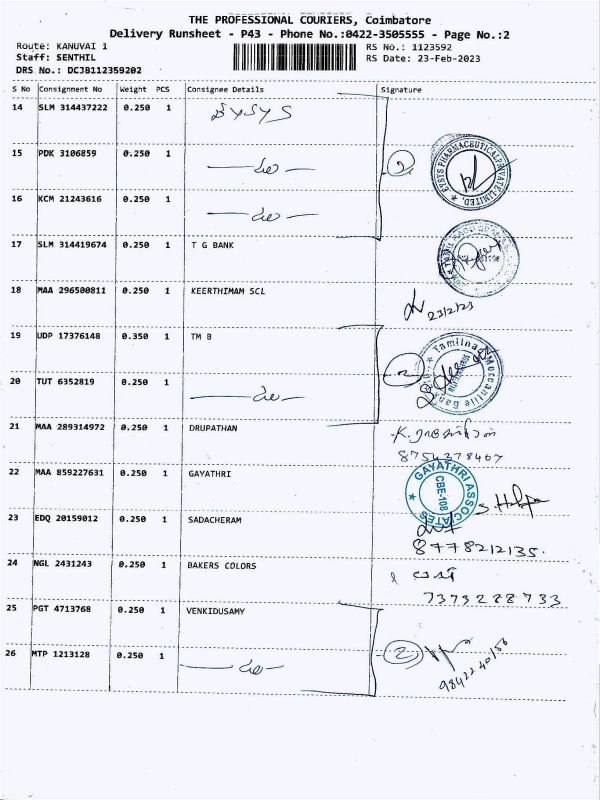 THE PROFESSIONAL COURIERS, Coimbatore
Delivery Runsheet - P43 - Phone No.:0422-3505555 - Page No.:2
Route: KANUVAI 1
RS No.: 1123592
Staff: SENTHIL
RS Date: 23-Feb-2023
DRS No.: DCJB112359202
S No Consignment No Weight PCS Consignee Details Signature
14 SLM 314437222 0.250 1
15 PDK 3106859 0.250 1
2
EYSYS PHARMACEUTICAL PRIVATE LIMITED.
16 KCM 21243616 0.250 1
17 SLM 314419674 0.250 1 T G BANK
18 MAA 296500811 0.250 1 KEERTHIMAM SCL
23/2/23
19 UDP 17376148 0.350 1 TM B
2
Tamilnad Mercantile Bank
20 TUT 6352819 0.250 1
21 MAA 289314972 0.250 1 DRUPATHAN
8754378467
22 MAA 859227631 0.250 1 GAYATHRI
GAYATHRI ASSOCIATES
CBE-108
23 EDQ 20159012 0.250 1 SADACHERAM
8778212135.
24 NGL 2431243 0.250 1 BAKERS COLORS
7373288733
25 PGT 4713768 0.250 1 VENKIDUSAMY
26 MTP 1213128 0.250 1
2